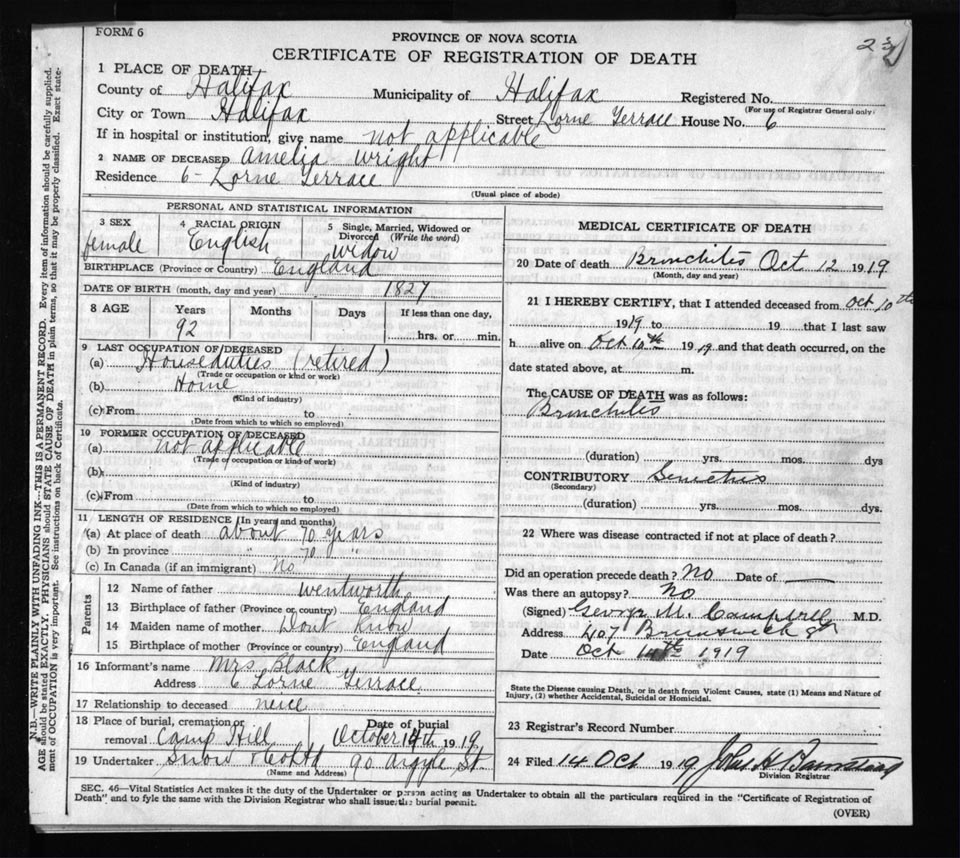 FORM 6
PROVINCE OF NOVA SCOTIA
CERTIFICATE OF REGISTRATION OF DEATH
1 PLACE OF DEATH
County of Halifax Municipality of Halifax Registered No.
(For use of Registrar General only)
City or Town Halifax Street Lorne Terrace House No. 6
If in hospital or institution, give name not applicable
2 NAME OF DECEASED Amelia Wright
Residence 6 - Lorne Terrace
(Usual place of abode)
PERSONAL AND STATISTICAL INFORMATION
3 SEX female
4 RACIAL ORIGIN English
5 Single, Married, Widowed or Divorced (Write the word) widow
BIRTHPLACE (Province or Country) England
DATE OF BIRTH (month, day and year) 1827
8 AGE Years Months Days If less than one day,
92 hrs. or min.
9 LAST OCCUPATION OF DECEASED
(a) Houseduties (retired)
(Trade or occupation or kind of work)
(b) Home
(Kind of industry)
(c) From to
(Date from which to which so employed)
10 FORMER OCCUPATION OF DECEASED
(a) not applicable
(Trade or occupation or kind of work)
(b)
(Kind of industry)
(c) From to
(Date from which to which so employed)
11 LENGTH OF RESIDENCE (In years and months)
(a) At place of death about 70 years
(b) In province " 70 "
(c) In Canada (if an immigrant) No
Parents
12 Name of father Wentworth
13 Birthplace of father (Province or country) England
14 Maiden name of mother Dont Know
15 Birthplace of mother (Province or country) England
16 Informant's name Mrs Black
Address 6 Lorne Terrace
17 Relationship to deceased neice
18 Place of burial, cremation or removal Camp Hill Date of burial October 14th 1919
19 Undertaker Snow & Co Ltd 90 Argyle St.
(Name and Address)
MEDICAL CERTIFICATE OF DEATH
20 Date of death Bronchitis Oct 12 1919
(Month, day and year)
21 I HEREBY CERTIFY, that I attended deceased from Oct 10th
1919 to 19 that I last saw
h alive on Oct 10th 1919 and that death occurred, on the
date stated above, at m.
The CAUSE OF DEATH was as follows:
Bronchitis
(duration) yrs. mos. dys
CONTRIBUTORY
(Secondary)
(duration) yrs. mos. dys.
22 Where was disease contracted if not at place of death?
Did an operation precede death? No Date of —
Was there an autopsy? No
(Signed) George M. Campbell M.D.
Address 407 Brunswick St
Date Oct 14th 1919
State the Disease causing Death, or in death from Violent Causes, state (1) Means and Nature of
Injury, (2) whether Accidental, Suicidal or Homicidal.
23 Registrar's Record Number
24 Filed 14 Oct 1919 John H Barnstead
Division Registrar
SEC. 46—Vital Statistics Act makes it the duty of the Undertaker or person acting as Undertaker to obtain all the particulars required in the "Certificate of Registration of
Death" and to fyle the same with the Division Registrar who shall issue the burial permit.
(OVER)
N.B.—WRITE PLAINLY WITH UNFADING INK—THIS IS A PERMANENT RECORD. Every item of information should be carefully supplied.
AGE should be stated EXACTLY. PHYSICIANS should STATE CAUSE OF DEATH in plain terms, so that it may be properly classified. Exact state-
ment of OCCUPATION is very important. See instructions on back of Certificate.